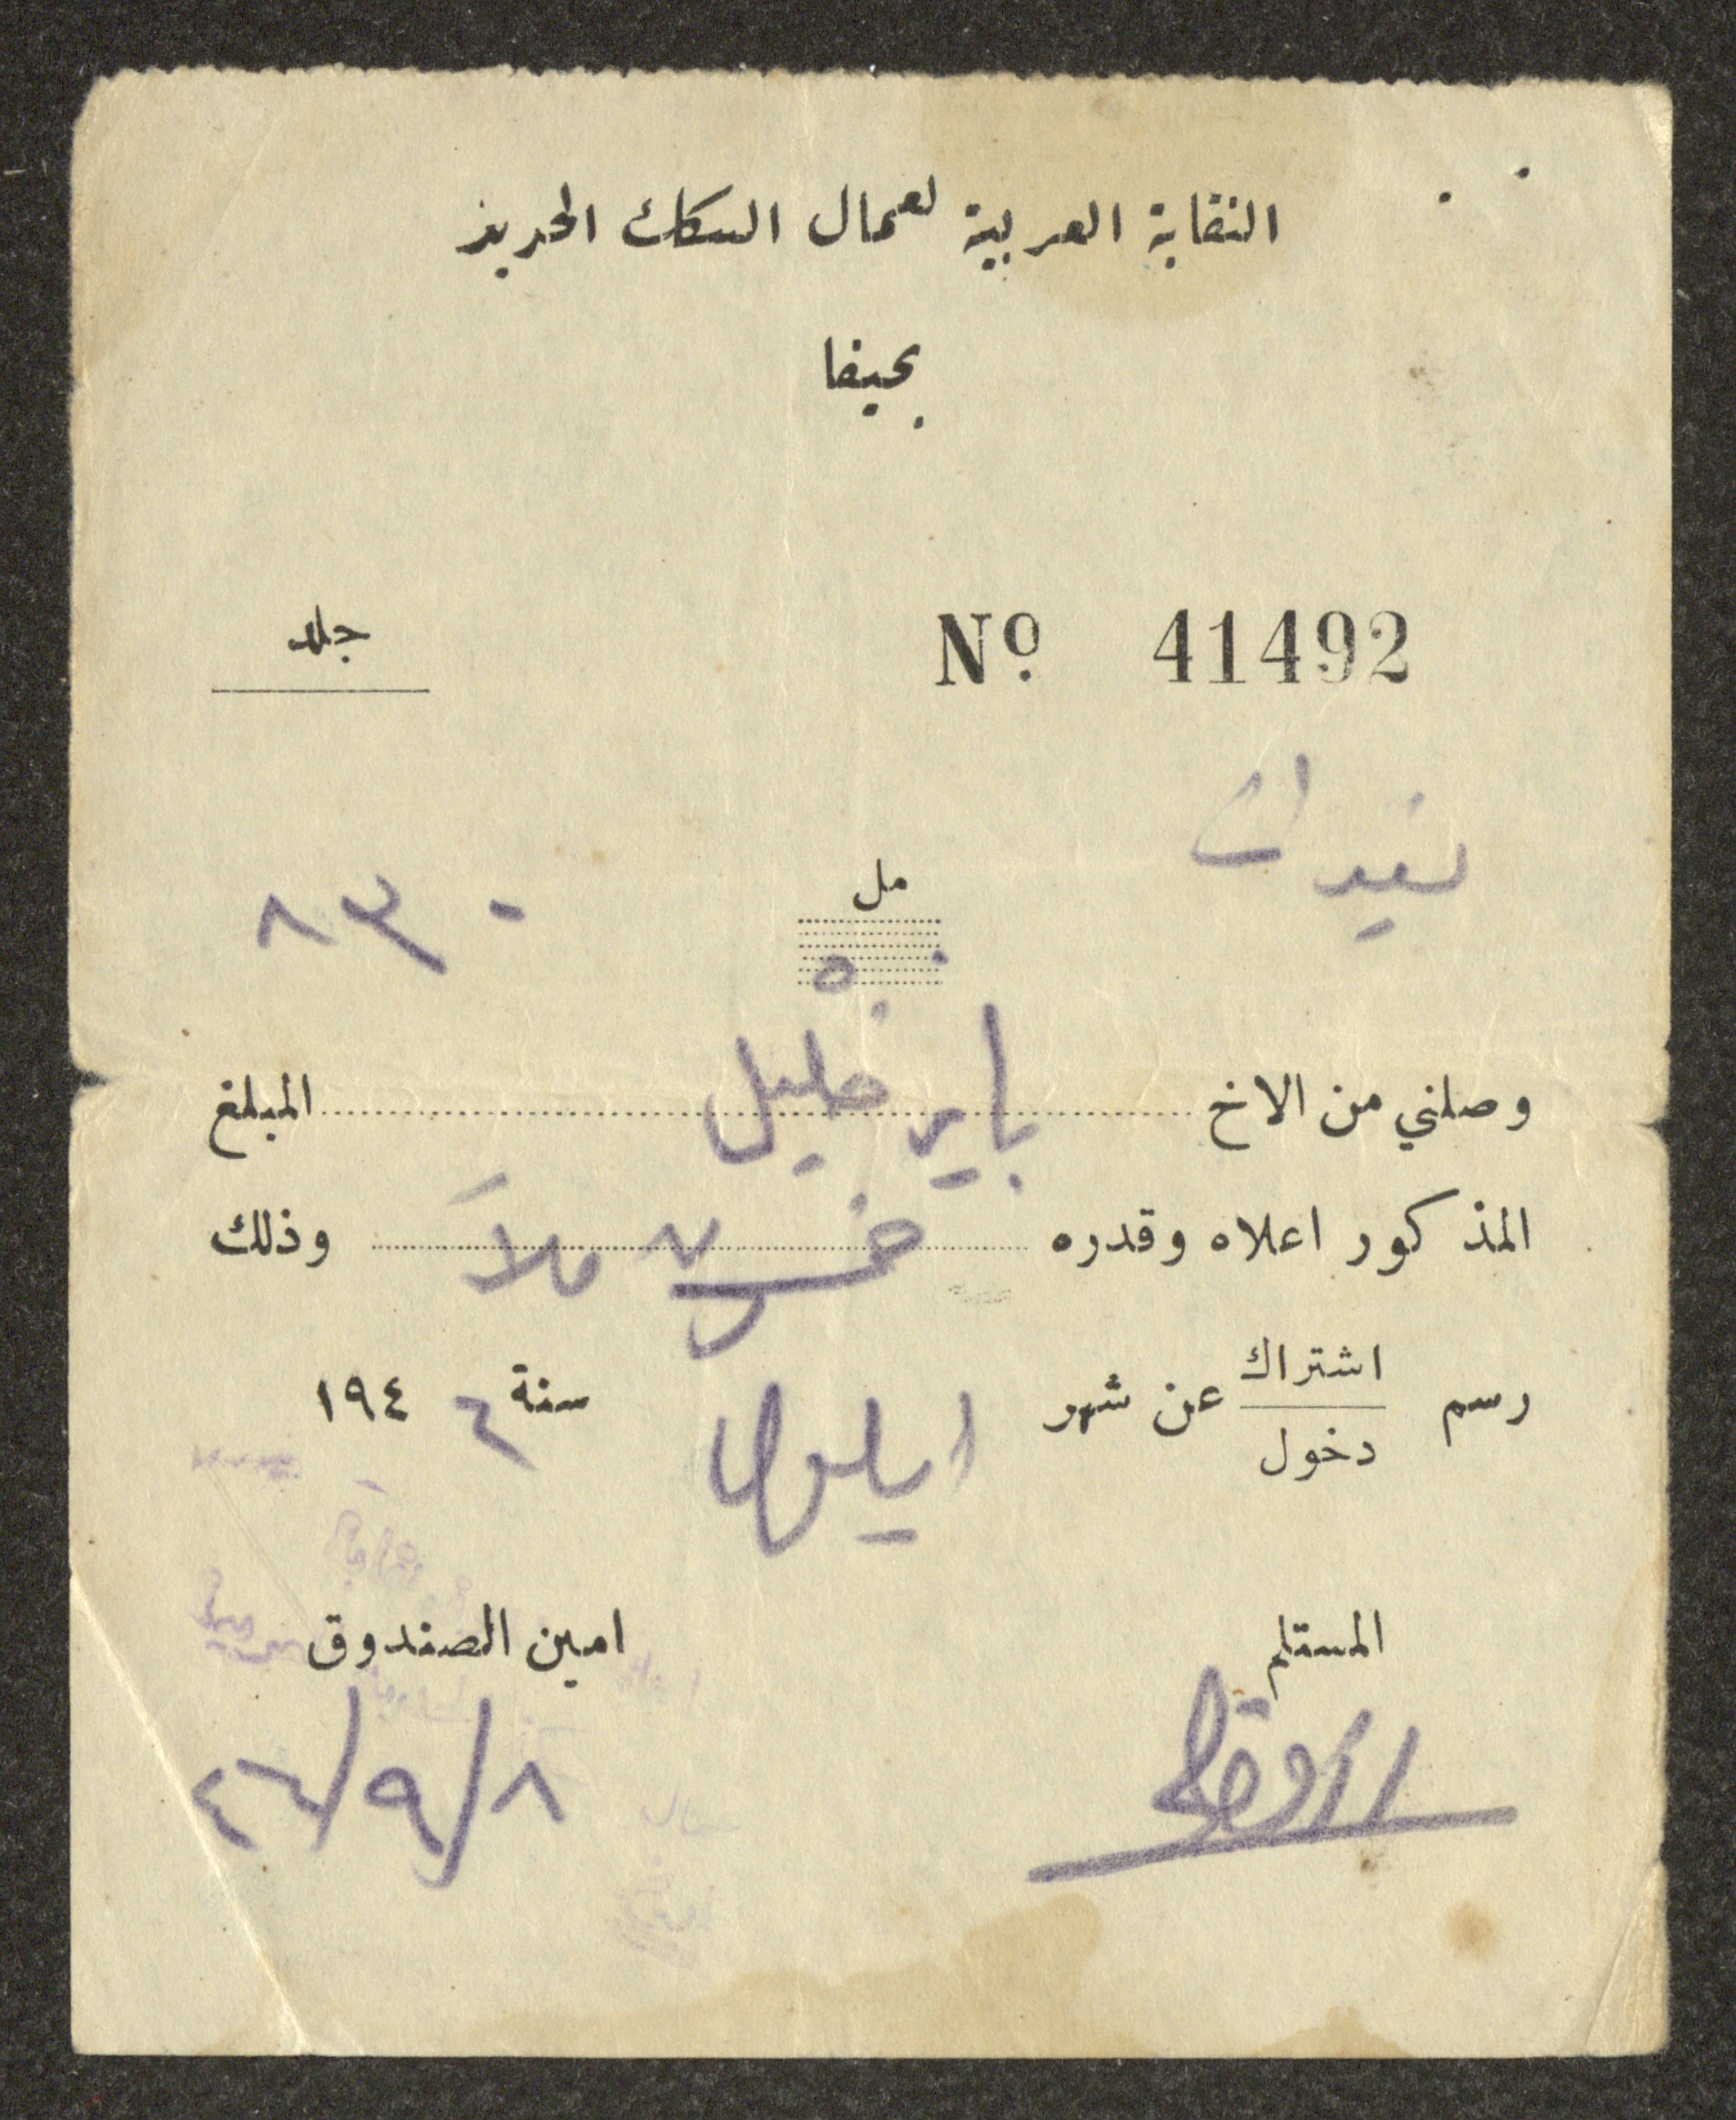 النقابة العربية لعمال السكك الحديد
بحيفا
جلد
№ 41492
مل
٥٠
٨٣٠
وصلني من الاخ باير خليل المبلغ
المذكور اعلاه وقدره خمسون ملاً وذلك
رسم اشتراك عن شهر ايلول سنة ١٩٤٦
دخول
المستلم
امين الصندوق
٤٦/٩/٨